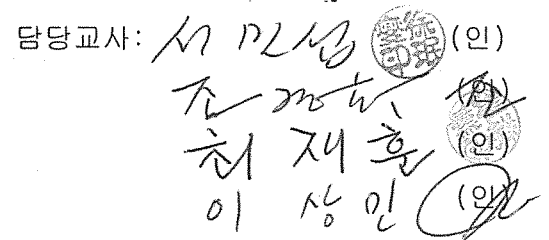 담당교사: 서민섭 (인)
조 (인)
최 재훈 (인)
이 상민 (인)